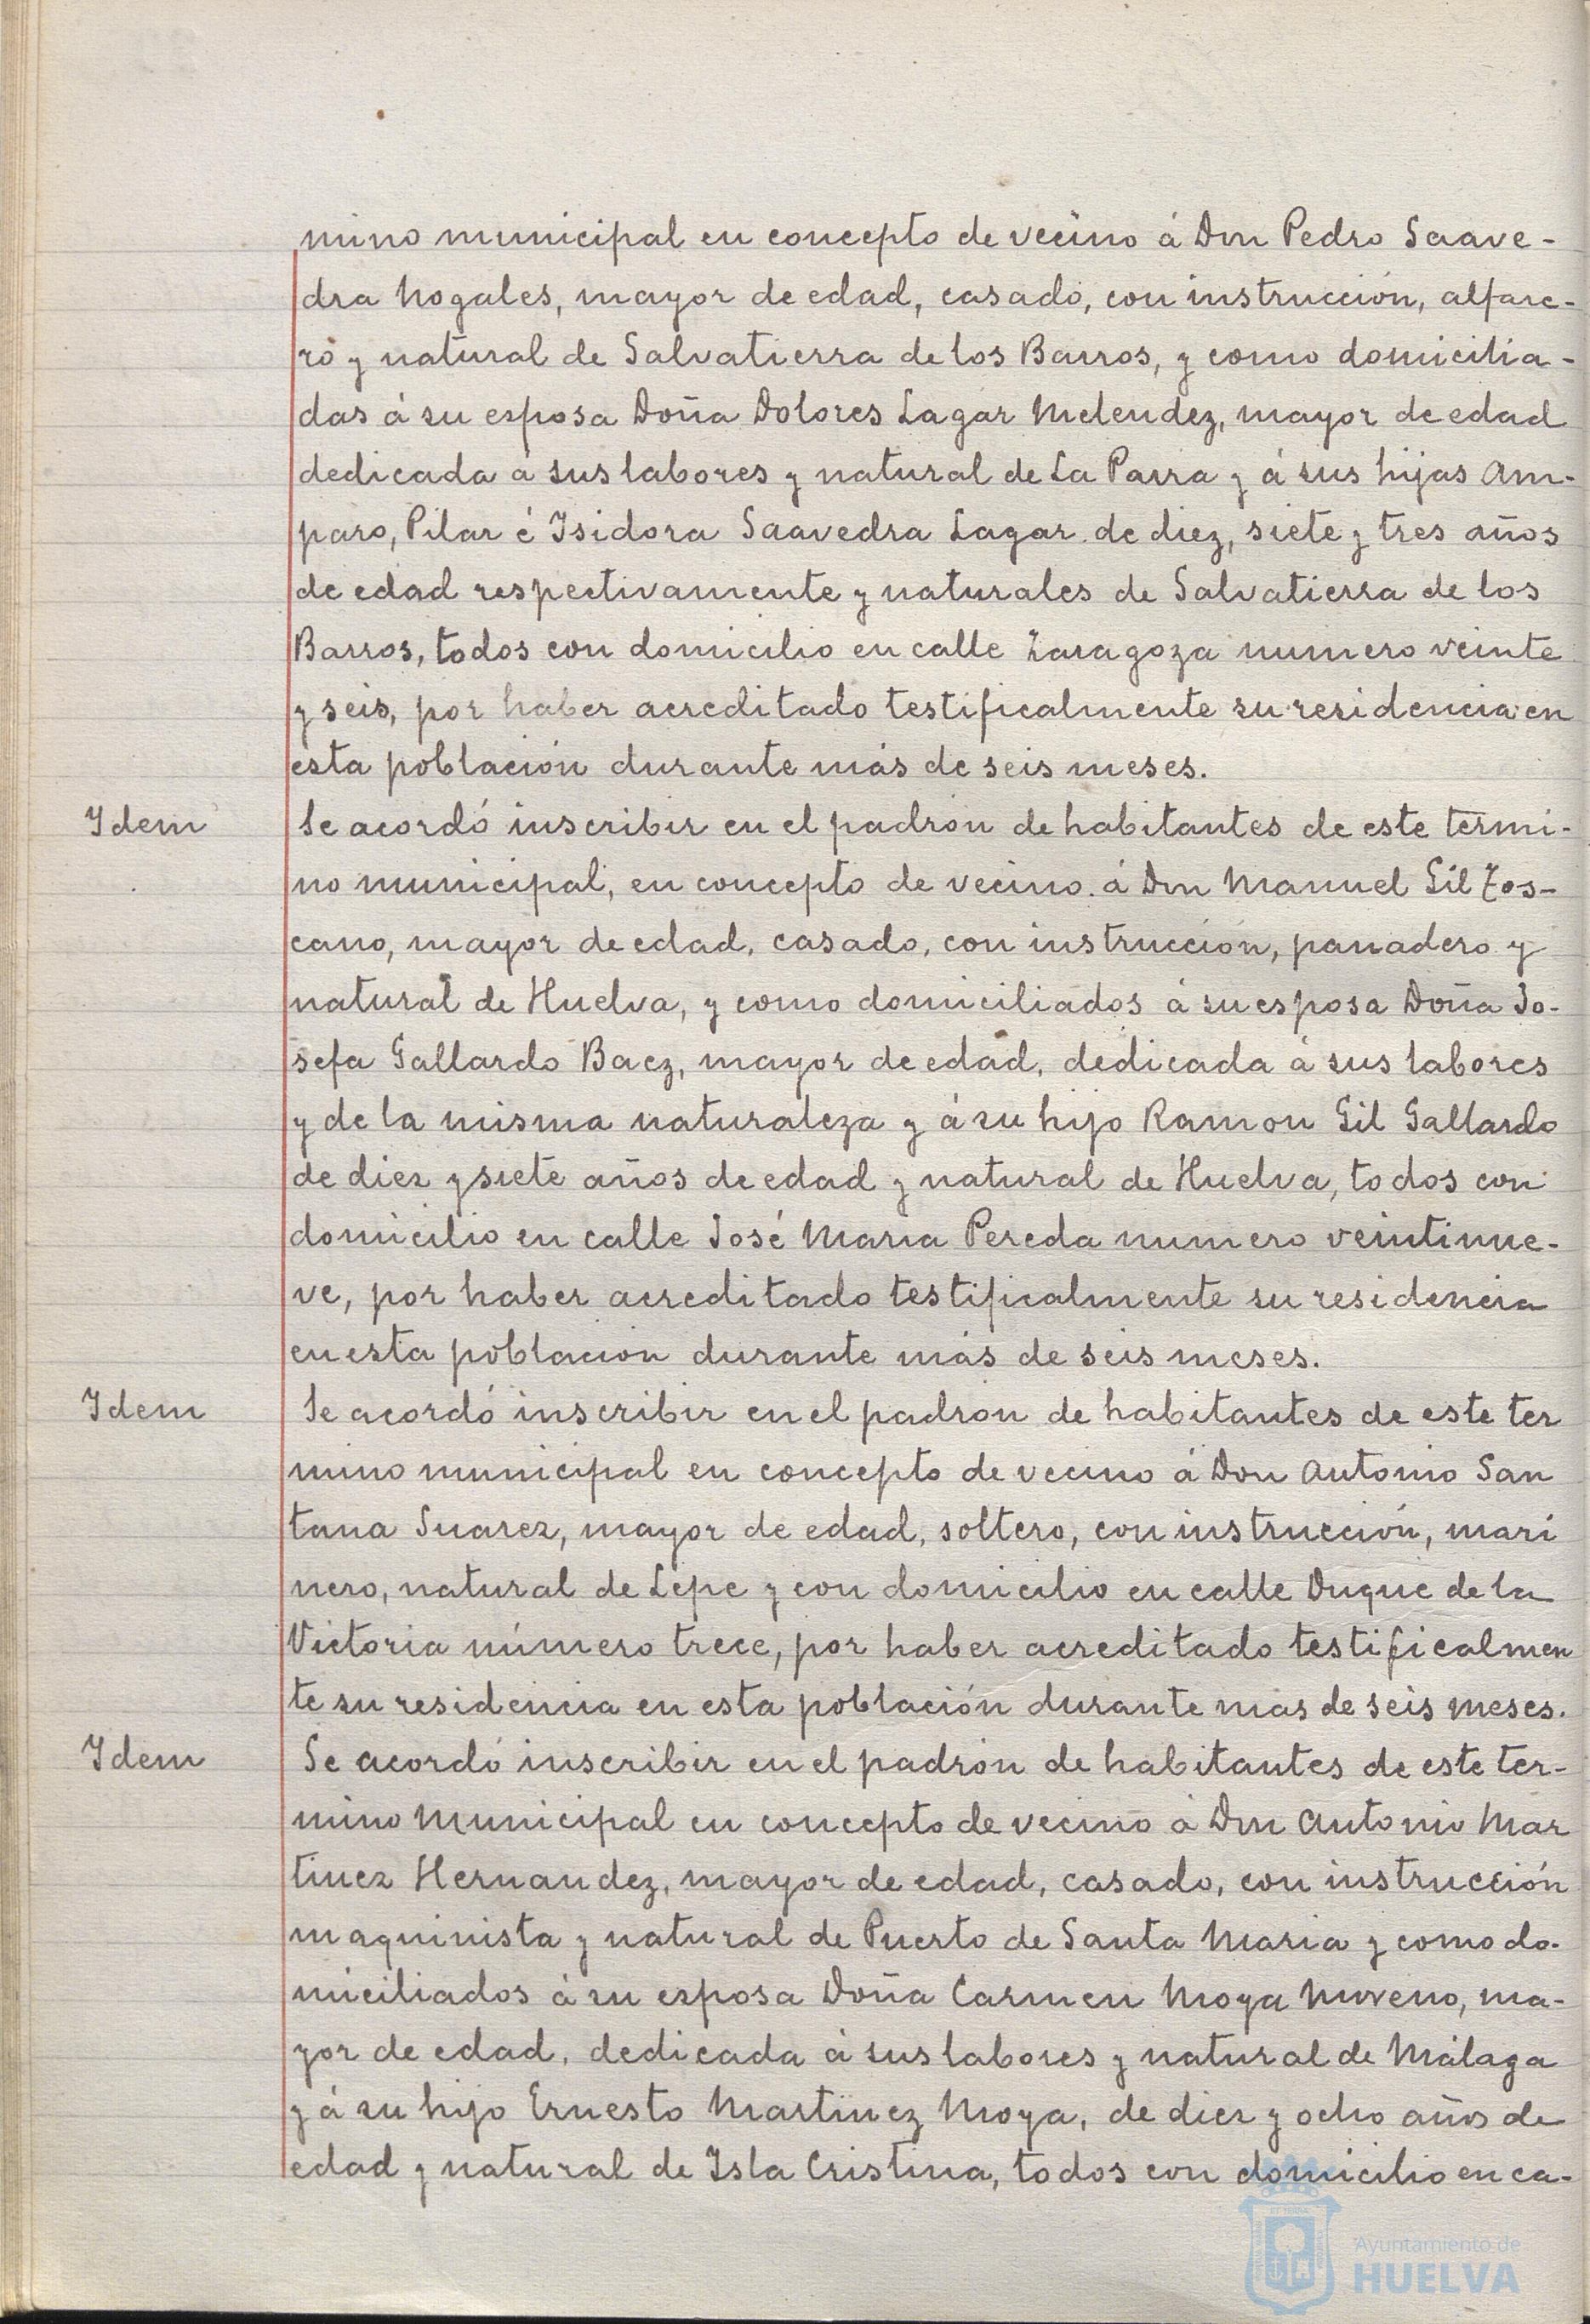 mino municipal en concepto de vecino á Don Pedro Saave-
dra Nogales, mayor de edad, casado, con instrucción, alfare-
ro y natural de Salvatierra de los Barros, y como domicilia-
das á su esposa Doña Dolores Lagar Melendez, mayor de edad
dedicada á sus labores y natural de La Parra y á sus hijas Am-
paro, Pilar é Isidora Saavedra Lagar de diez, siete y tres años
de edad respectivamente y naturales de Salvatierra de los
Barros, todos con domicilio en calle Zaragoza numero veinte
y seis, por haber acreditado testificalmente su residencia en
esta población durante más de seis meses.
Idem
Se acordó inscribir en el padrón de habitantes de este termi-
no municipal, en concepto de vecino á Don Manuel Gil Tos-
cano, mayor de edad, casado, con instrucción, panadero y
natural de Huelva, y como domiciliados á su esposa Doña Jo-
sefa Gallardo Baez, mayor de edad, dedicada á sus labores
y de la misma naturaleza y á su hijo Ramon Gil Gallardo
de diez y siete años de edad y natural de Huelva, todos con
domicilio en calle José Maria Pereda numero veintinue-
ve, por haber acreditado testificalmente su residencia
en esta poblacion durante más de seis meses.
Idem
Se acordó inscribir en el padron de habitantes de este ter
mino municipal en concepto de vecino á Don Antonio San
tana Suarez, mayor de edad, soltero, con instrucción, mari
nero, natural de Lepe y con domicilio en calle Duque de la
Victoria número trece, por haber acreditado testificalmen
te su residencia en esta población durante mas de seis meses.
Idem
Se acordó inscribir en el padrón de habitantes de este ter-
mino municipal en concepto de vecino á Don Antonio Mar
tinez Hernandez, mayor de edad, casado, con instrucción
maquinista y natural de Puerto de Santa Maria y como do-
miciliados á su esposa Doña Carmen Moya Moreno, ma-
yor de edad, dedicada á sus labores y natural de Málaga
y á su hijo Ernesto Martinez Moya, de diez y ocho años de
edad y natural de Isla Cristina, todos con domicilio en ca-
Ayuntamiento de
HUELVA